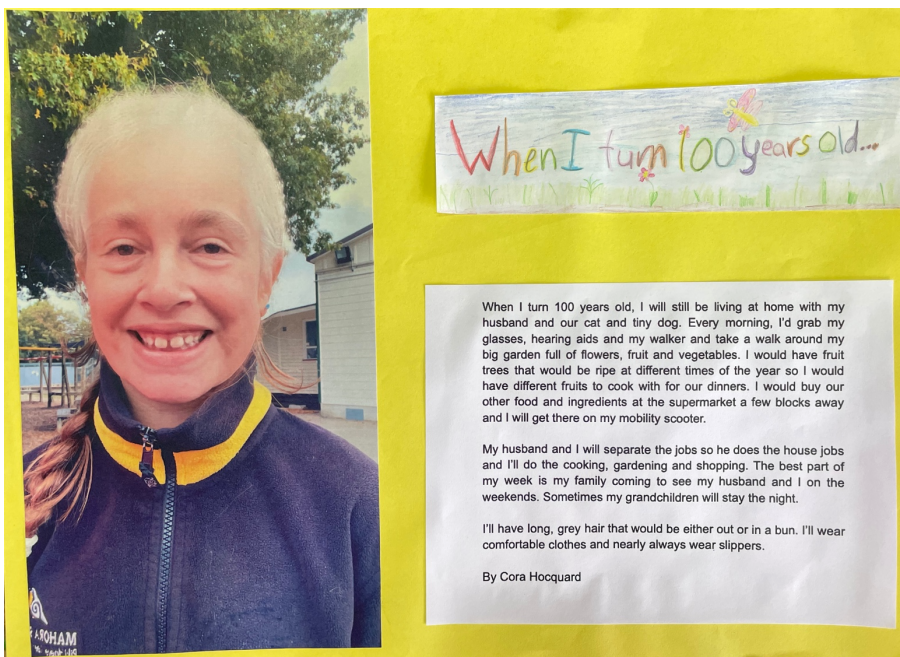 When I turn 100 years old...
When I turn 100 years old, I will still be living at home with my
husband and our cat and tiny dog. Every morning, I'd grab my
glasses, hearing aids and my walker and take a walk around my
big garden full of flowers, fruit and vegetables. I would have fruit
trees that would be ripe at different times of the year so I would
have different fruits to cook with for our dinners. I would buy our
other food and ingredients at the supermarket a few blocks away
and I will get there on my mobility scooter.
My husband and I will separate the jobs so he does the house jobs
and I'll do the cooking, gardening and shopping. The best part of
my week is my family coming to see my husband and I on the
weekends. Sometimes my grandchildren will stay the night.
I'll have long, grey hair that would be either out or in a bun. I'll wear
comfortable clothes and nearly always wear slippers.
By Cora Hocquard